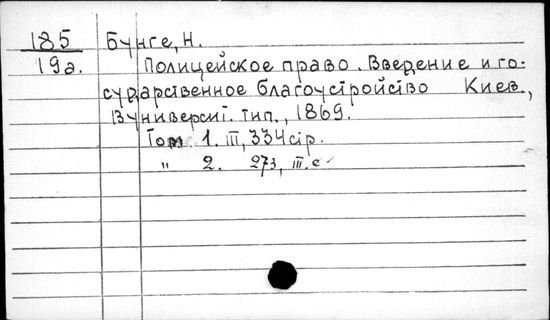 185 Бунге, Н.
19а. Полицейское право. Введение и го-
сударственное благоустройство Киев.,
В университ. тип., 1869.
Том 1. III, 334 стр.
" 2. 273, III. с